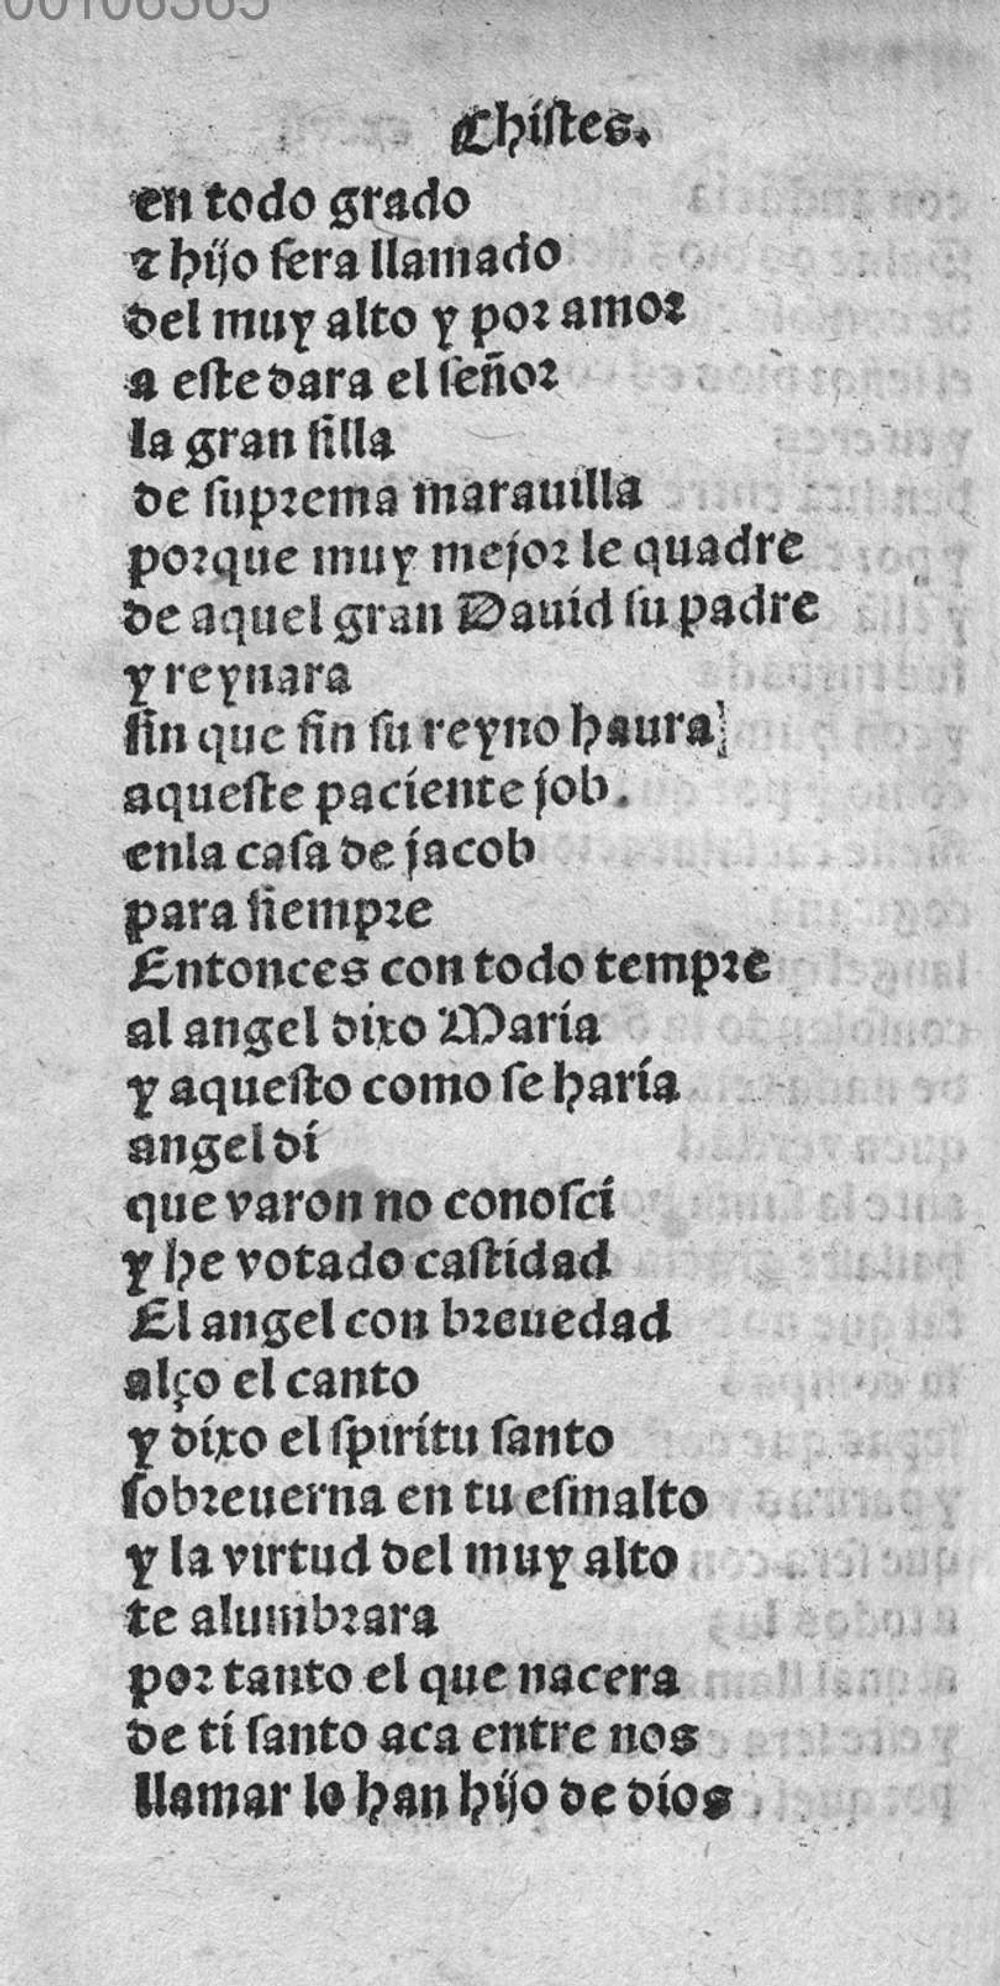 Chistes.
en todo grado
⁊ hijo sera llamado
del muy alto y por amor
a este dara el señor
la gran silla
de suprema marauilla
porque muy mejor le quadre
de aquel gran Dauid su padre
y reynara
sin que fin su reyno haura
aqueste paciente job.
enla casa de jacob
para siempre
Entonces con todo tempre
al angel dixo Maria
y aquesto como se haria
angel di
que varon no conosci
y he votado castidad
El angel con breuedad
alço el canto
y dixo el spiritu santo
sobreuerna en tu esmalto
y la virtud del muy alto
te alumbrara
por tanto el que nacera
de ti santo aca entre nos
llamar lo han hijo de dios